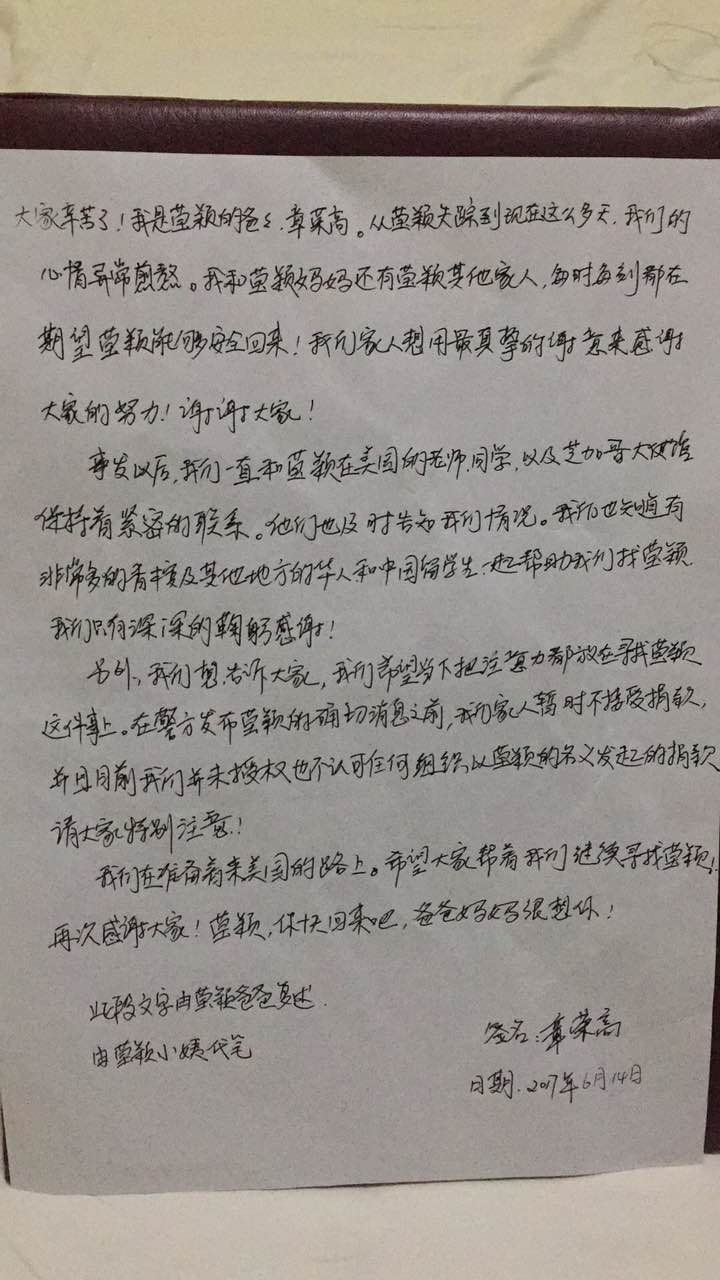 大家辛苦了！我是莹颖的爸爸，章荣高。从莹颖失踪到现在这么多天，我们的
心情异常煎熬。我和莹颖妈妈还有莹颖其他家人，每时每刻都在
期望莹颖能够安全回来！我们家人想用最真挚的谢意来感谢
大家的努力！谢谢大家！
事发以后，我们一直和莹颖在美国的老师，同学，以及芝加哥大使馆
保持着紧密的联系。他们也及时告知我们情况。我们也知道有
非常多的香槟及其他地方的华人和中国留学生一起帮助我们找莹颖，
我们只有深深的鞠躬感谢！
另外，我们想告诉大家，我们希望当下把注意力都放在寻找莹颖
这件事上。在警方发布莹颖的确切消息之前，我们家人暂时不接受捐款，
并且目前我们并未授权也不认可任何组织以莹颖的名义发起的捐款
请大家特别注意！
我们在准备着来美国的路上。希望大家帮着我们继续寻找莹颖！
再次感谢大家！莹颖，你快回来吧，爸爸妈妈很想你！
此段文字由莹颖爸爸复述.
由莹颖小姨代笔
签名：章荣高
日期：2017年6月14日